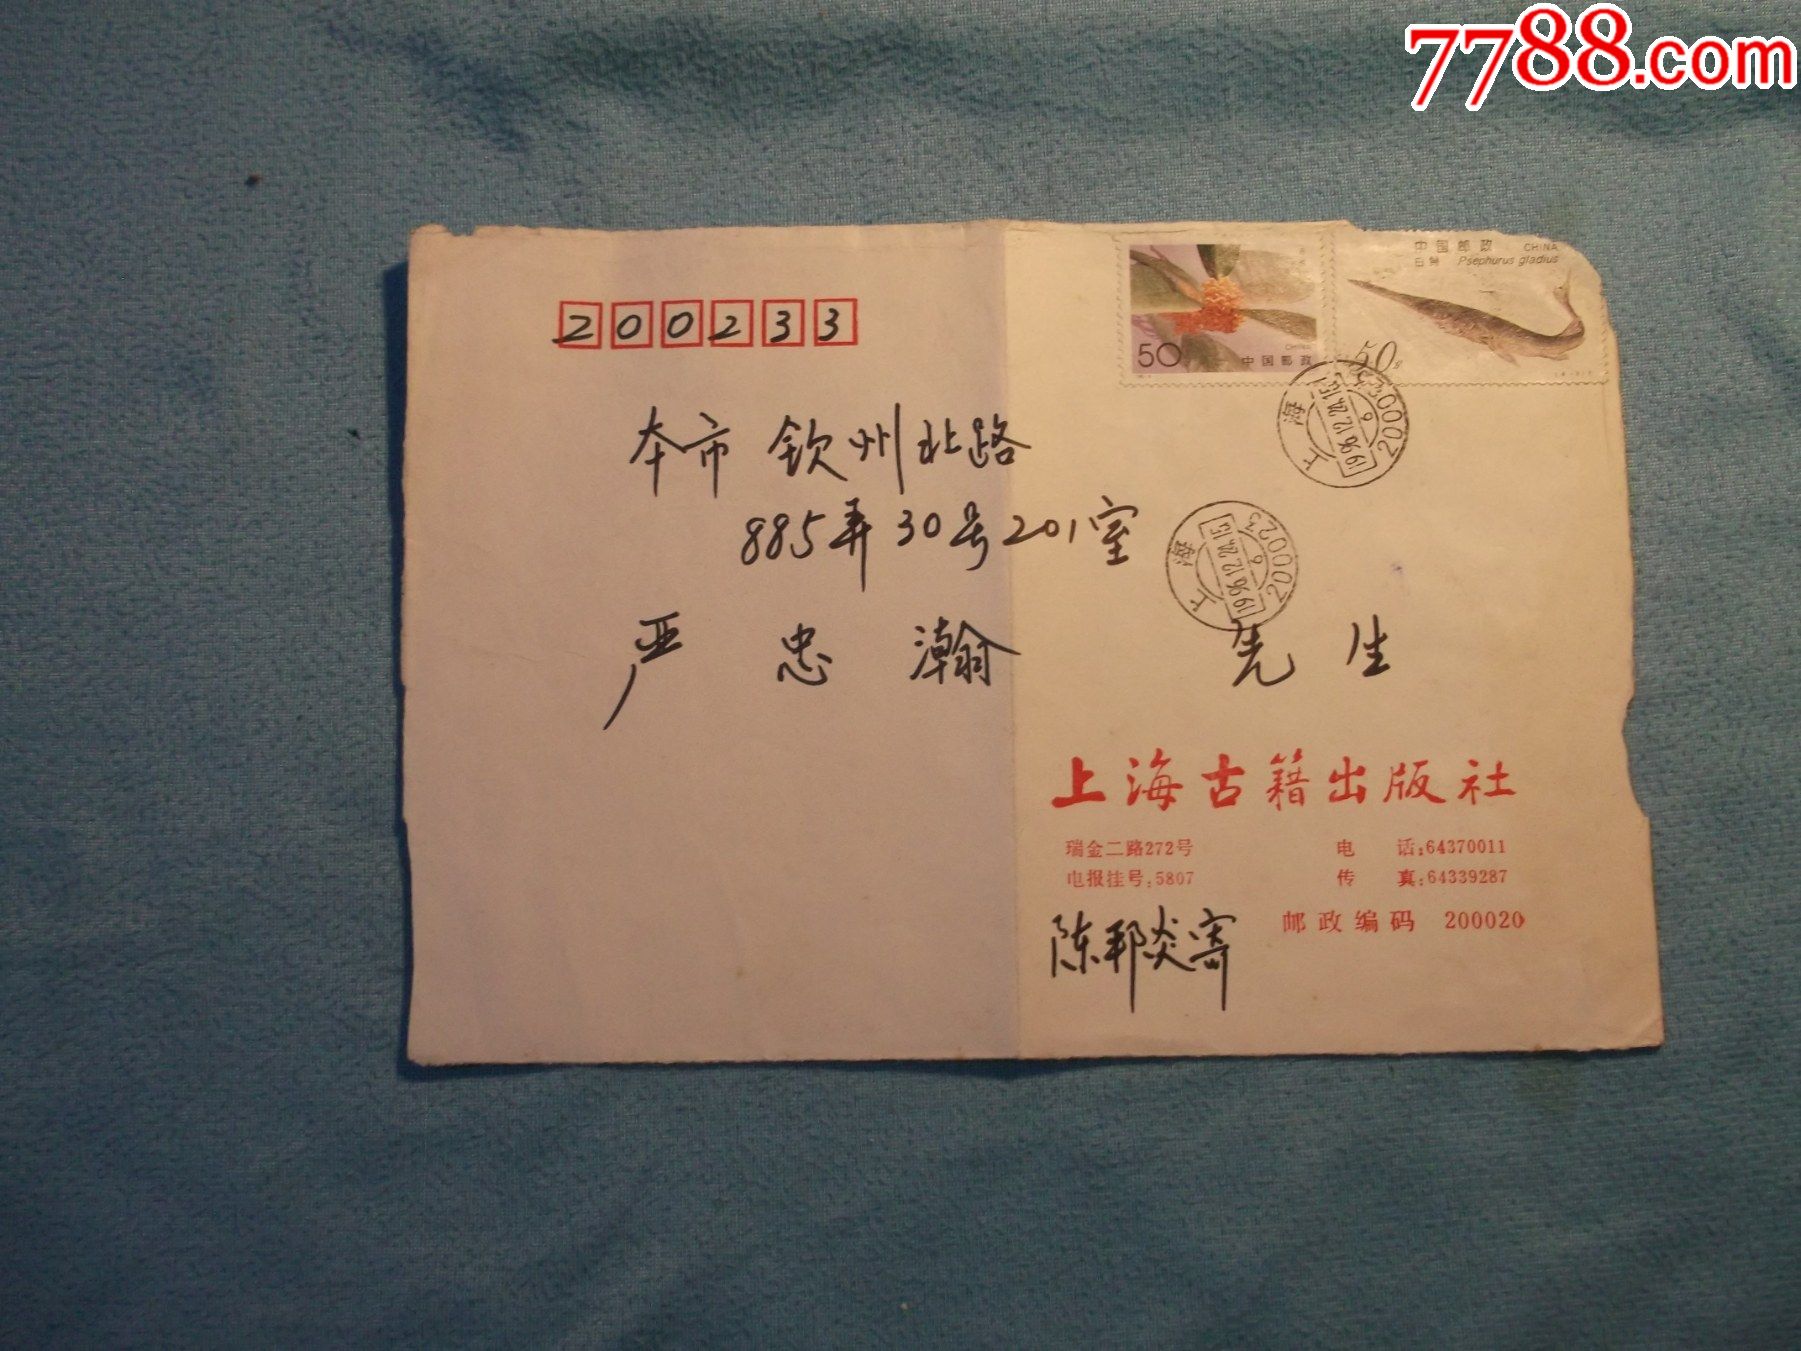 7788.com
中国邮政 CHINA
白鲟 Psephurus gladius
50
CHINA
中国邮政
50
200233
上海
1996.12.24.15
6
200023
上海
1996.12.24.15
6
200023
本市 钦州北路
885弄30号201室
严忠瀚 先生
上海古籍出版社
瑞金二路272号 电话:64370011
电报挂号:5807 传真:64339287
邮政编码 200020
陈邦炎寄